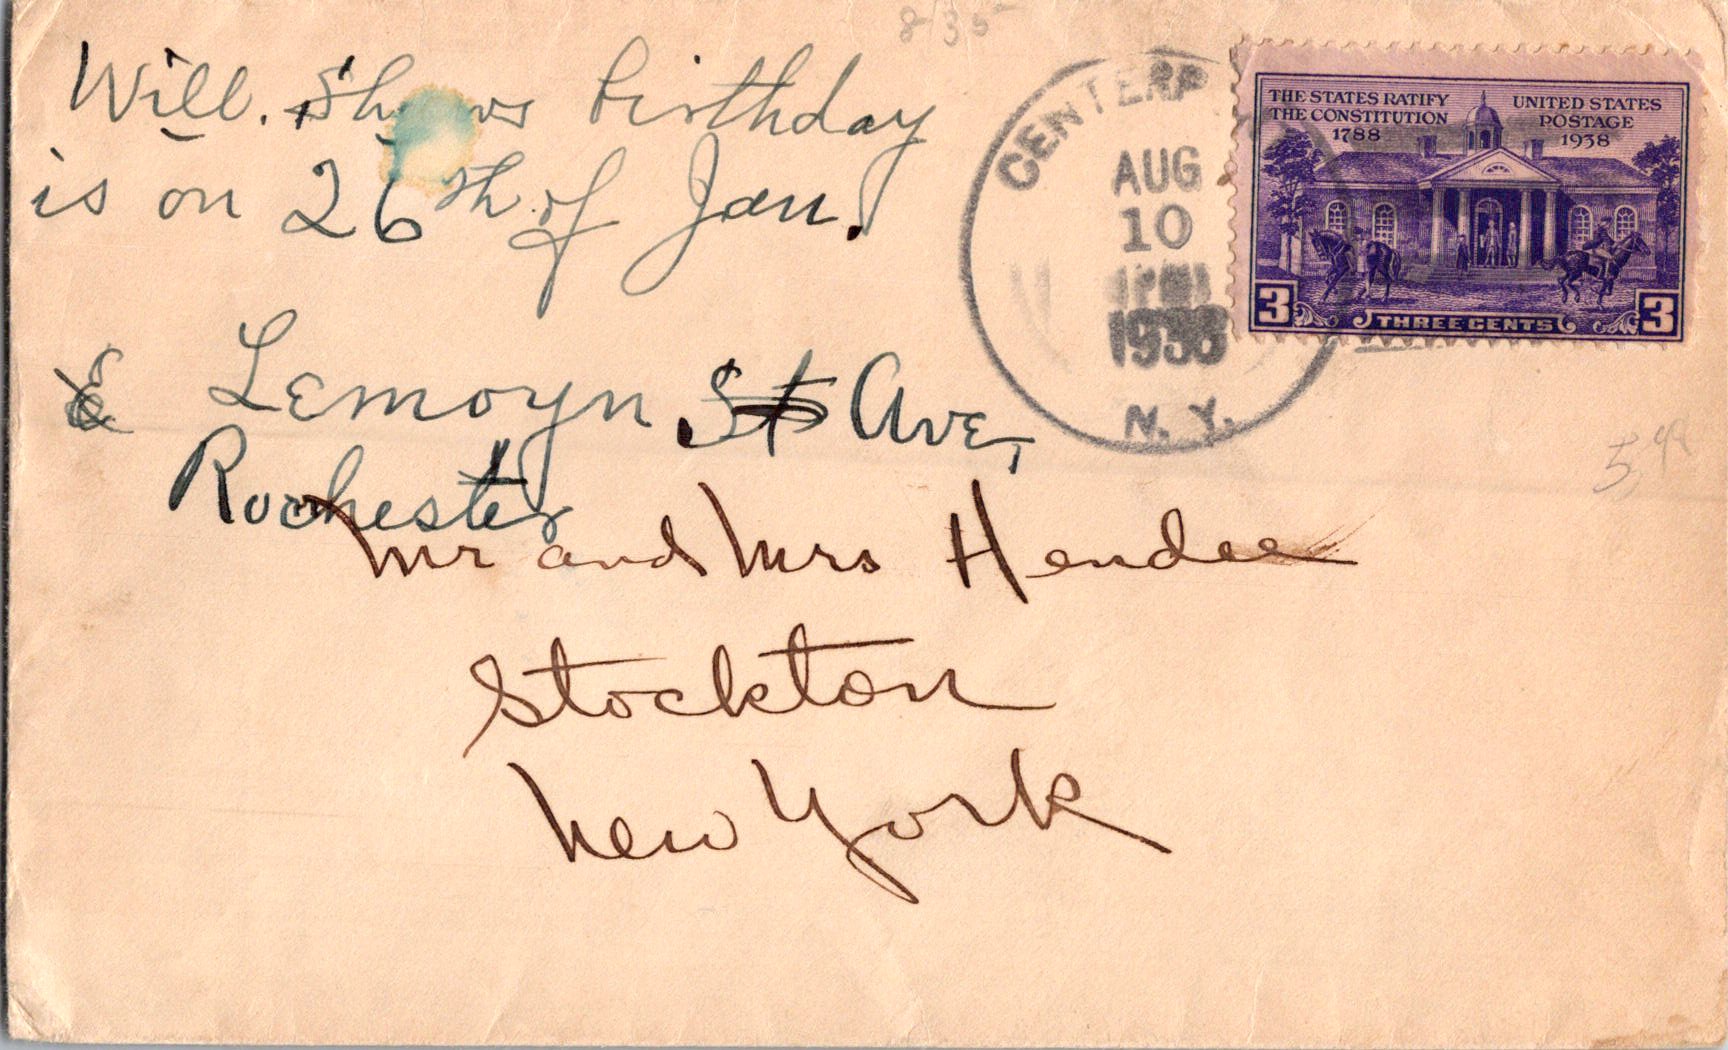 Will. birthday
is on 26th of Jan.
Lemoyn St Ave,
Rochester
Mr and Mrs Hendee
Stockton
New York
CENTERP
AUG
10
1938
N. Y.
THE STATES RATIFY
THE CONSTITUTION
1788
UNITED STATES
POSTAGE
1938
3 THREE CENTS 3